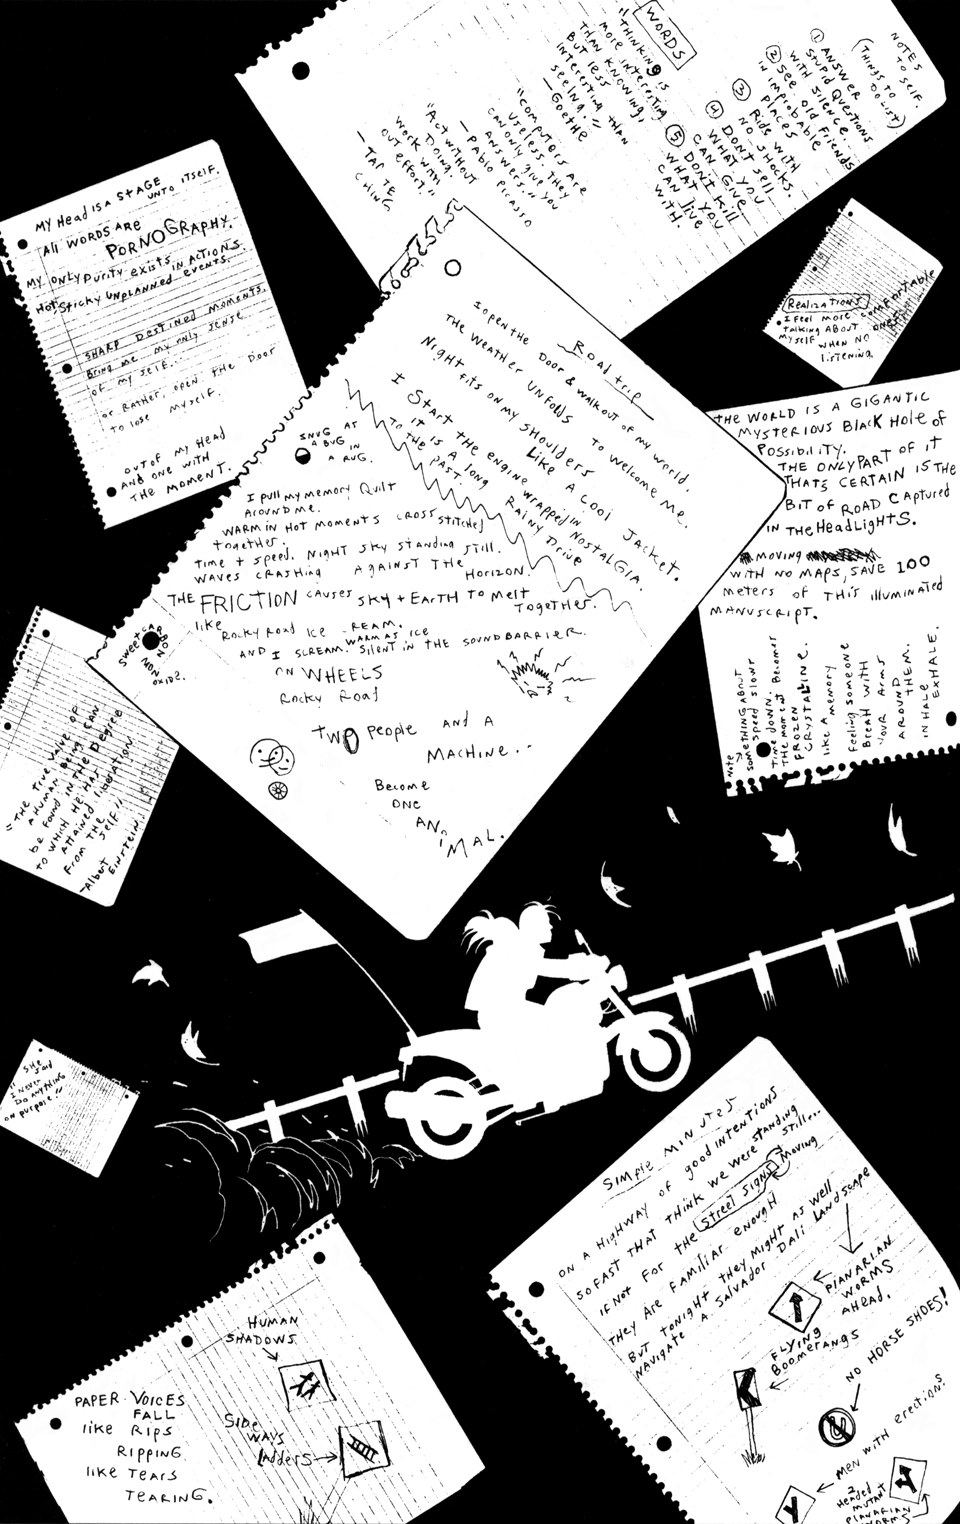 NOTES
TO SELF.
(THINGS TO
DO LIST)
① ANSWER
STUPID QUESTIONS
WITH SILENCE.
② SEE OLD FRIENDS
IN IMPROBABLE
PLACES
③ RIDE WITH
NO SHOCKS.
④ DON'T SELL
WHAT YOU
CAN GIVE
⑤ DON'T KILL
WHAT YOU
CAN LIVE
WITH.
WORDS
"THINKING IS
MORE INTERESTING
THAN KNOWING,
BUT LESS
INTERESTING THAN
SEEING."
—GOETHE
"COMPUTERS ARE
USELESS. THEY
CAN ONLY GIVE YOU
ANSWERS."
—PABLO PICASSO
"ACT WITHOUT
DOING.
WORK WITH-
OUT EFFORT."
—TAO TE
CHING
MY HEAD IS A STAGE
UNTO ITSELF.
All WORDS ARE
PORNOGRAPHY.
MY ONLY PURITY EXISTS IN ACTIONS.
HOT STICKY UNPLANNED EVENTS.
SHARP DESTINED MOMENTS.
BRING ME MY ONLY SENSE
OF MY SELF.
OR RATHER, OPEN THE DOOR
TO LOSE MYSELF.
OUT OF MY HEAD
AND ONE WITH
THE MOMENT.
REALIZATIONS
I FEEL MORE COMFORTABLE
TALKING ABOUT ONES
MYSELF WHEN NO
LISTENING
ROAD TRIP
I OPEN THE DOOR & WALK OUT OF MY WORLD.
THE WEATHER UNFOLDS TO WELCOME ME.
NIGHT FITS ON MY SHOULDERS
LIKE A COOL JACKET.
I START THE ENGINE WRAPPED IN NOSTALGIA.
IT IS A LONG RAINY DRIVE
TO THE PAST.
SNUG AS
A BUG IN
A RUG.
I PULL MY MEMORY QUILT
AROUND ME.
WARM IN HOT MOMENTS CROSS STITCHED
TOGETHER.
TIME + SPEED. NIGHT SKY STANDING STILL.
WAVES CRASHING AGAINST THE
HORIZON.
THE FRICTION CAUSES SKY + EARTH TO MELT
TOGETHER.
LIKE
ROCKY ROAD ICE REAM.
WARM AS ICE
AND I SCREAM. SILENT IN THE SOUND BARRIER.
ON WHEELS
ROCKY ROAD
SWEET CARBON
NON
OXIDE.
TWO PEOPLE AND A
MACHINE..
BECOME
ONE
ANIMAL.
THE WORLD IS A GIGANTIC
MYSTERIOUS BLACK HOLE OF
POSSIBILITY.
THE ONLY PART OF IT
THATS CERTAIN IS THE
BIT OF ROAD CAPTURED
IN THE HEADLIGHTS.
MOVING
WITH NO MAPS, SAVE 100
METERS OF THIS ILLUMINATED
MANUSCRIPT.
NOTE →
SOMETHING ABOUT
SPEED SLOWS
TIME DOWN.
THE MOMENT BECOMES
FROZEN
CRYSTALINE.
LIKE A MEMORY
FEELING SOMEONE
BREATH WITH
YOUR ARMS
AROUND THEM.
INHALE
EXHALE.
"THE TRUE VALUE OF
A HUMAN BUG CAN
BE FOUND IN THE DEGREE
TO WHICH HE HAS
ATTAINED LIBERATION
FROM THE SELF."
—ALBERT
EINSTEIN
SHE
SAID
"I NEVER
DO ANYTHING
ON PURPOSE."
SIMPLE MINUTES
ON A HIGHWAY OF GOOD INTENTIONS
SO FAST THAT I THINK WE WERE STANDING STILL...
IF NOT FOR THE STREET SIGNS MOVING
THEY ARE FAMILIAR ENOUGH
BUT TONIGHT THEY MIGHT AS WELL
NAVIGATE A SALVADOR DALI LANDSCAPE
PLANARIAN
WORMS
AHEAD.
FLYING
BOOMERANGS
NO HORSE SHOES!
MEN WITH ERECTIONS
2
HEADED
MUTANT
PLANARIAN
WORMS
HUMAN
SHADOWS
SIDE
WAYS
LADDERS
PAPER VOICES
FALL
LIKE RIPS
RIPPING.
LIKE TEARS
TEARING.